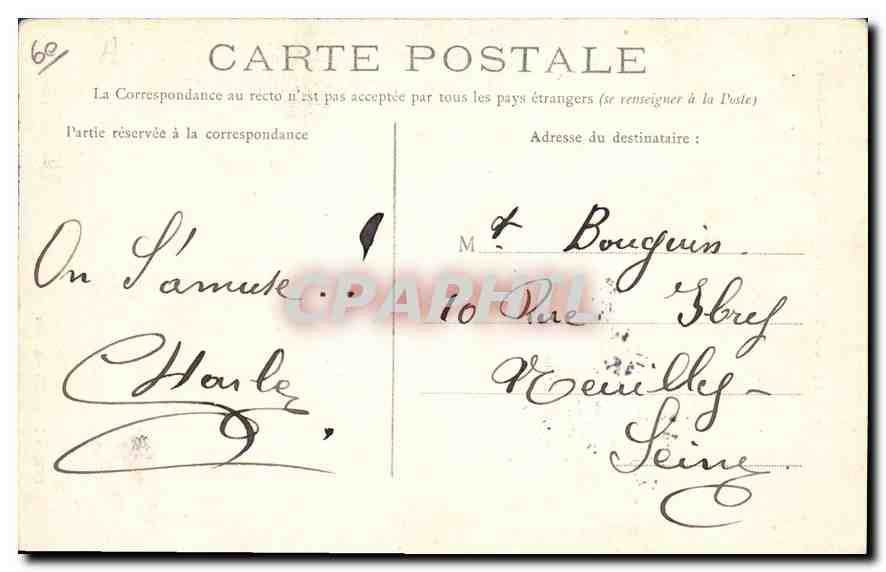 60
CARTE POSTALE
La Correspondance au recto n'est pas acceptée par tous les pays étrangers (se renseigner à la Poste)
Partie réservée à la correspondance
Adresse du destinataire :
On S'amuse..!
Charles
M r. Bouguin
10 Rue Ybry
Neuilly-
Seine
CPAPHIL